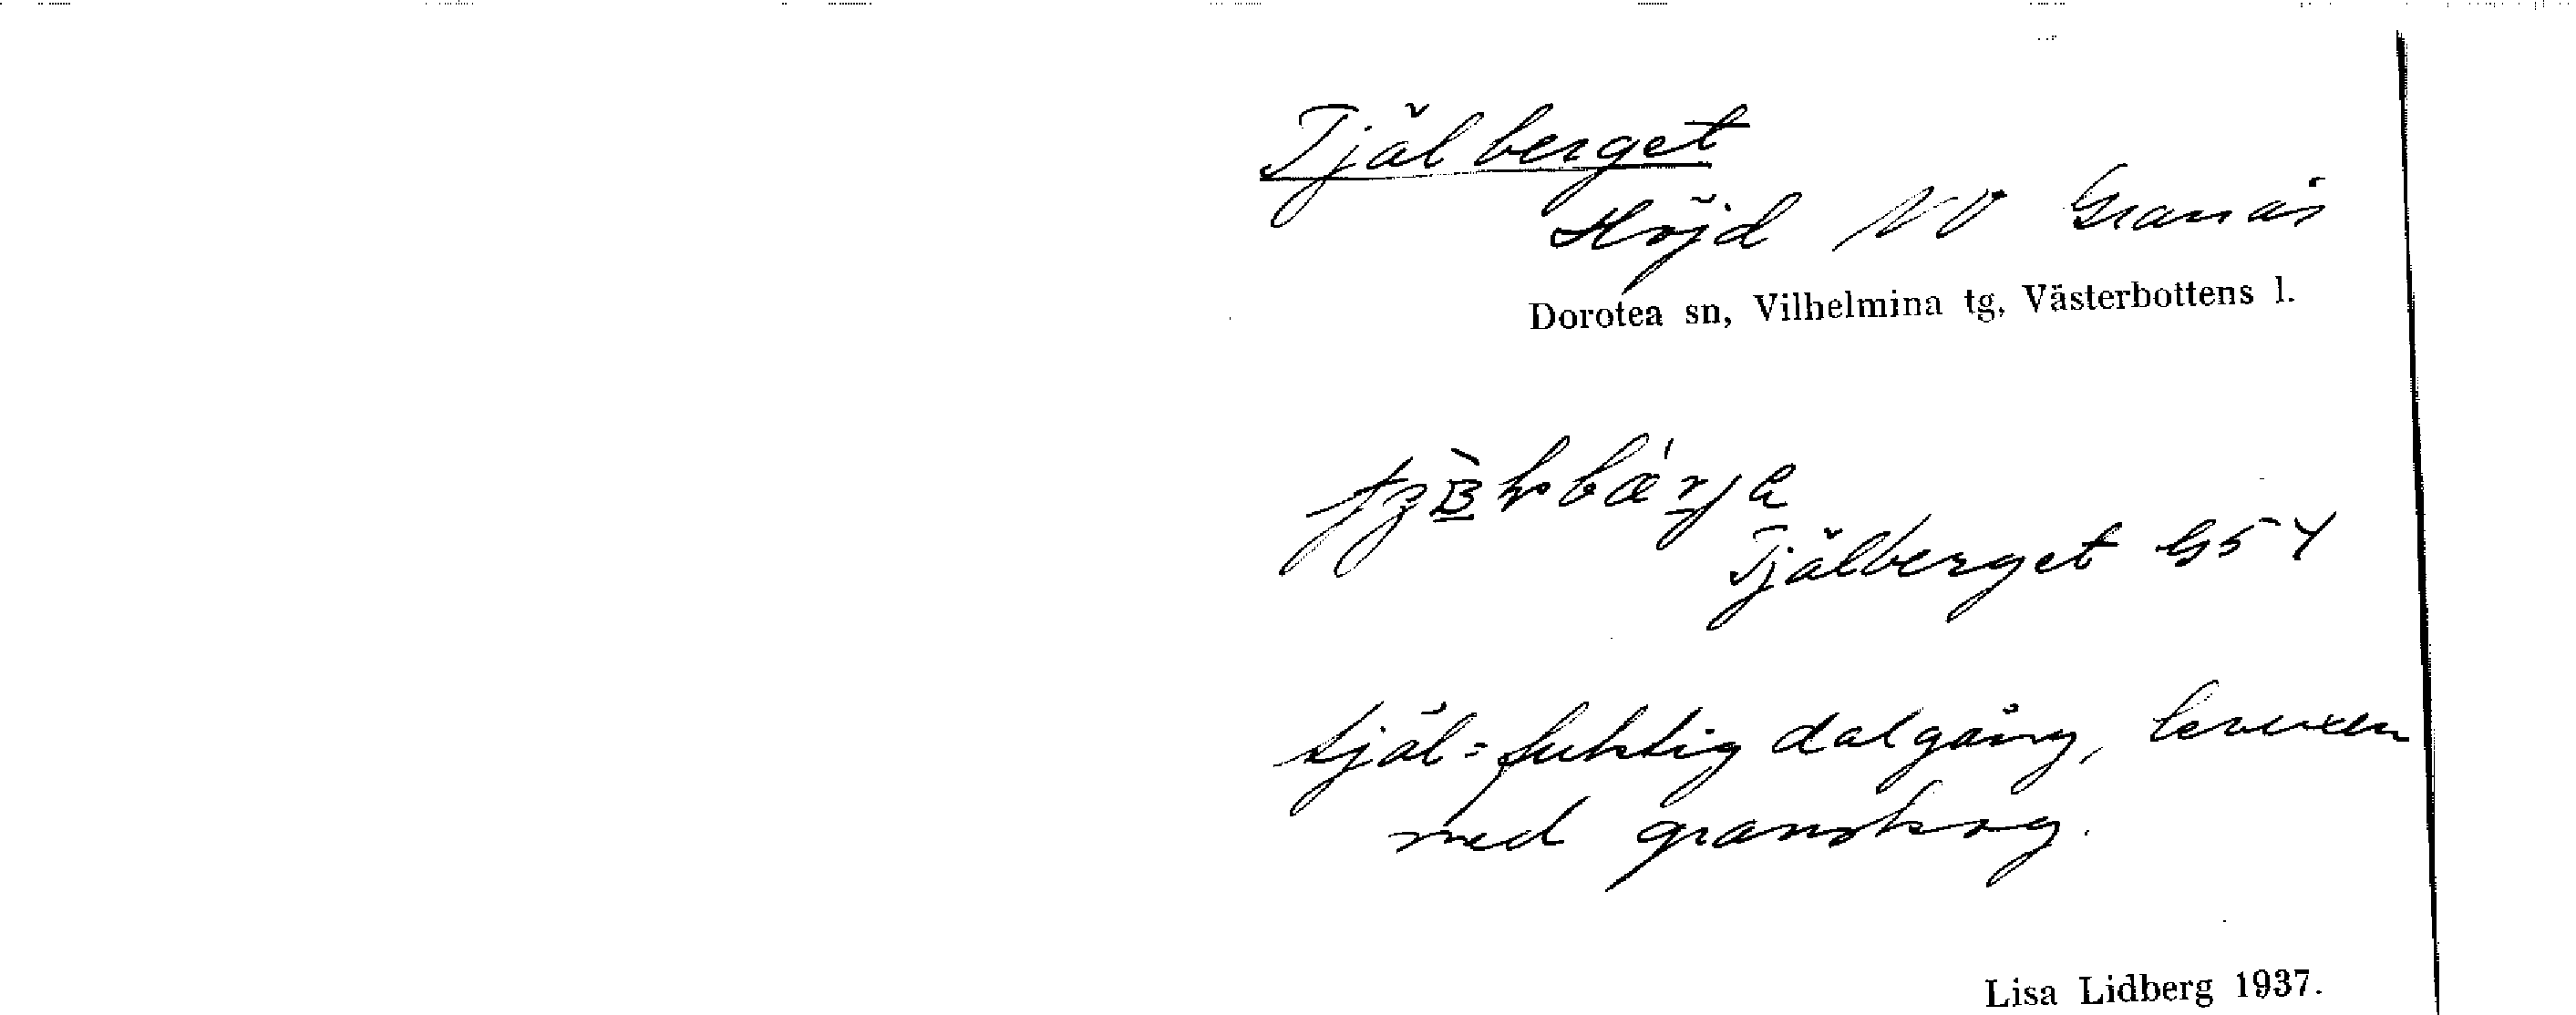 Tjälberget
Höjd NV Granås
Dorotea sn, Vilhelmina tg, Västerbottens l.
Tjälberget G54
tjäl = fuktig dalgång, bevuxen
med granskog.
Lisa Lidberg 1937.